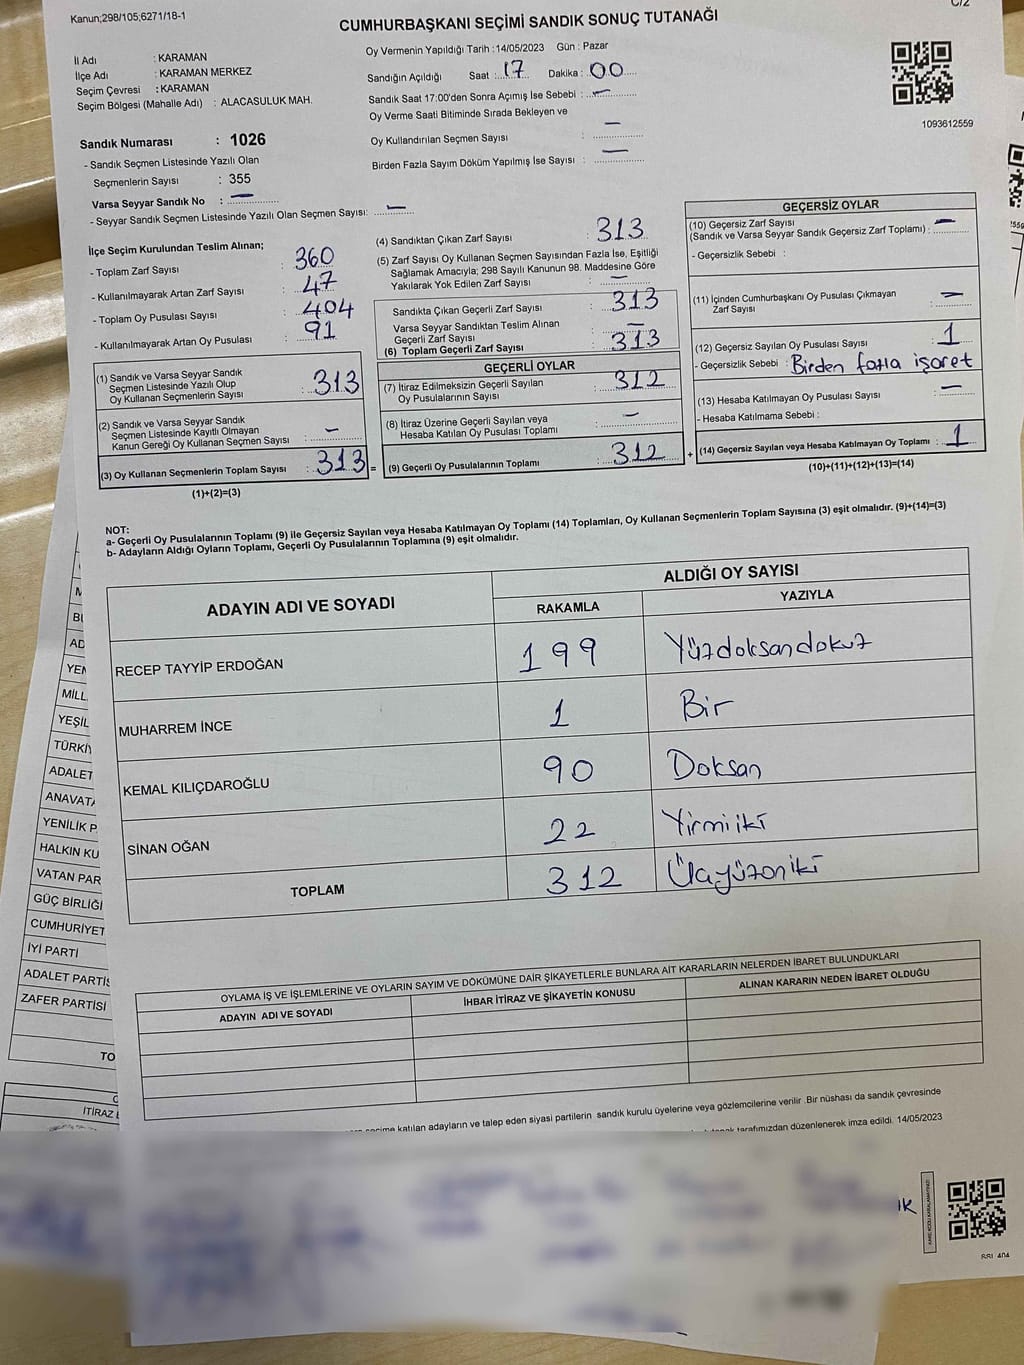 Kanun;298/105;6271/18-1
C/2
CUMHURBAŞKANI SEÇİMİ SANDIK SONUÇ TUTANAĞI
İl Adı : KARAMAN
İlçe Adı : KARAMAN MERKEZ
Seçim Çevresi : KARAMAN
Seçim Bölgesi (Mahalle Adı) : ALACASULUK MAH.
Oy Vermenin Yapıldığı Tarih : 14/05/2023 Gün : Pazar
Sandığın Açıldığı Saat : 17 Dakika : 00
Sandık Saat 17:00'den Sonra Açımış İse Sebebi : —
Oy Verme Saati Bitiminde Sırada Bekleyen ve
Oy Kullandırılan Seçmen Sayısı : —
Birden Fazla Sayım Döküm Yapılmış İse Sayısı : —
1093612559
Sandık Numarası : 1026
- Sandık Seçmen Listesinde Yazılı Olan
Seçmenlerin Sayısı : 355
Varsa Seyyar Sandık No : —
- Seyyar Sandık Seçmen Listesinde Yazılı Olan Seçmen Sayısı: —
İlçe Seçim Kurulundan Teslim Alınan;
- Toplam Zarf Sayısı : 360
- Kullanılmayarak Artan Zarf Sayısı : 47
- Toplam Oy Pusulası Sayısı : 404
- Kullanılmayarak Artan Oy Pusulası : 91
(1) Sandık ve Varsa Seyyar Sandık
Seçmen Listesinde Yazılı Olup
Oy Kullanan Seçmenlerin Sayısı : 313
(2) Sandık ve Varsa Seyyar Sandık
Seçmen Listesinde Kayıtlı Olmayan
Kanun Gereği Oy Kullanan Seçmen Sayısı : —
(3) Oy Kullanan Seçmenlerin Toplam Sayısı : 313 =
(1)+(2)=(3)
(4) Sandıktan Çıkan Zarf Sayısı : 313
(5) Zarf Sayısı Oy Kullanan Seçmen Sayısından Fazla İse, Eşitliği
Sağlamak Amacıyla; 298 Sayılı Kanunun 98. Maddesine Göre
Yakılarak Yok Edilen Zarf Sayısı : —
Sandıkta Çıkan Geçerli Zarf Sayısı : 313
Varsa Seyyar Sandıktan Teslim Alınan
Geçerli Zarf Sayısı : —
(6) Toplam Geçerli Zarf Sayısı : 313
GEÇERLİ OYLAR
(7) İtiraz Edilmeksizin Geçerli Sayılan
Oy Pusulalarının Sayısı : 312
(8) İtiraz Üzerine Geçerli Sayılan veya
Hesaba Katılan Oy Pusulası Toplamı : —
(9) Geçerli Oy Pusulalarının Toplamı : 312 +
GEÇERSİZ OYLAR
(10) Geçersiz Zarf Sayısı
(Sandık ve Varsa Seyyar Sandık Geçersiz Zarf Toplamı) : —
- Geçersizlik Sebebi :
(11) İçinden Cumhurbaşkanı Oy Pusulası Çıkmayan
Zarf Sayısı : —
(12) Geçersiz Sayılan Oy Pusulası Sayısı : 1
- Geçersizlik Sebebi : Birden fazla işaret
(13) Hesaba Katılmayan Oy Pusulası Sayısı : —
- Hesaba Katılmama Sebebi :
(14) Geçersiz Sayılan veya Hesaba Katılmayan Oy Toplamı : 1
(10)+(11)+(12)+(13)=(14)
NOT:
a- Geçerli Oy Pusulalarının Toplamı (9) ile Geçersiz Sayılan veya Hesaba Katılmayan Oy Toplamı (14) Toplamları, Oy Kullanan Seçmenlerin Toplam Sayısına (3) eşit olmalıdır. (9)+(14)=(3)
b- Adayların Aldığı Oyların Toplamı, Geçerli Oy Pusulalarının Toplamına (9) eşit olmalıdır.
ADAYIN ADI VE SOYADI ALDIĞI OY SAYISI
RAKAMLA YAZIYLA
RECEP TAYYİP ERDOĞAN 199 Yüzdoksandokuz
MUHARREM İNCE 1 Bir
KEMAL KILIÇDAROĞLU 90 Doksan
SİNAN OĞAN 22 Yirmiiki
TOPLAM 312 Üçyüzoniki
OYLAMA İŞ VE İŞLEMLERİNE VE OYLARIN SAYIM VE DÖKÜMÜNE DAİR ŞİKAYETLERLE BUNLARA AİT KARARLARIN NELERDEN İBARET BULUNDUKLARI
ADAYIN ADI VE SOYADI İHBAR İTİRAZ VE ŞİKAYETİN KONUSU ALINAN KARARIN NEDEN İBARET OLDUĞU
seçime katılan adayların ve talep eden siyasi partilerin sandık kurulu üyelerine veya gözlemcilerine verilir .Bir nüshası da sandık çevresinde
tutanak tarafımızdan düzenlenerek imza edildi. 14/05/2023
YEN
MİLL
YEŞİL
TÜRKİY
ADALET
ANAVATA
YENİLİK P
HALKIN KU
VATAN PAR
GÜÇ BİRLİĞİ
CUMHURİYET
İYİ PARTİ
ADALET PARTİS
ZAFER PARTİSİ
TO
İTİRAZ E